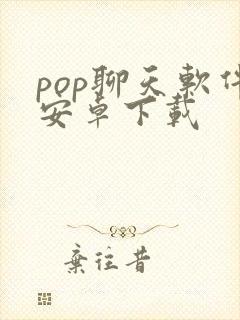 pop聊天软件
安卓下載
棄往昔